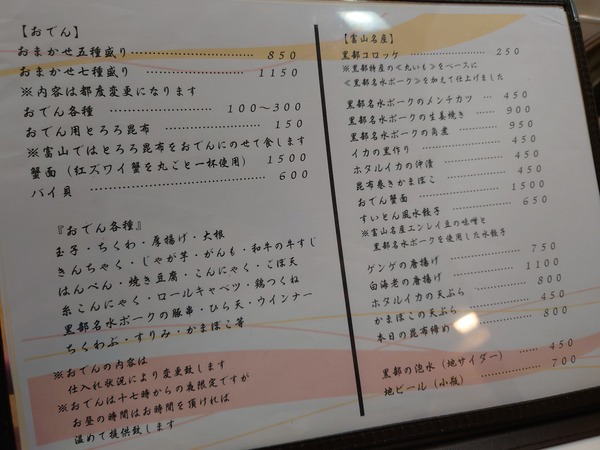 【おでん】
おまかせ五種盛り 850
おまかせ七種盛り 1150
※内容は都度変更になります
おでん各種 100〜300
おでん用とろろ昆布 150
※富山ではとろろ昆布をおでんにのせて食します
蟹面（紅ズワイ蟹を丸ごと一杯使用） 1500
バイ貝 600
『おでん各種』
玉子・ちくわ・厚揚げ・大根
きんちゃく・じゃが芋・がんも・和牛の牛すじ
はんぺん・焼き豆腐・こんにゃく・ごぼ天
糸こんにゃく・ロールキャベツ・鶏つくね
黒部名水ポークの豚串・ひら天・ウインナー
ちくわぶ・すりみ・かまぼこ等
※おでんの内容は
仕入れ状況により変更致します
※おでんは十七時からの夜限定ですが
お昼の時間はお時間を頂ければ
温めて提供致します
【富山名産】
黒部コロッケ 250
※黒部特産の≪丸いも≫をベースに
≪黒部名水ポーク≫を加えて仕上げました
黒部名水ポークのメンチカツ 450
黒部名水ポークの生姜焼き 900
黒部名水ポークの角煮 950
イカの黒作り 450
ホタルイカの沖漬 450
昆布巻きかまぼこ 450
おでん蟹面 1500
すいとん風水餃子 650
※富山名産エンレイ豆の味噌と
黒部名水ポークを使用した水餃子
ゲンゲの唐揚げ 750
白海老の唐揚げ 1100
ホタルイカの天ぷら 800
かまぼこの天ぷら 450
本日の昆布締め 800
黒部の泡水（地サイダー） 450
地ビール（小瓶） 700